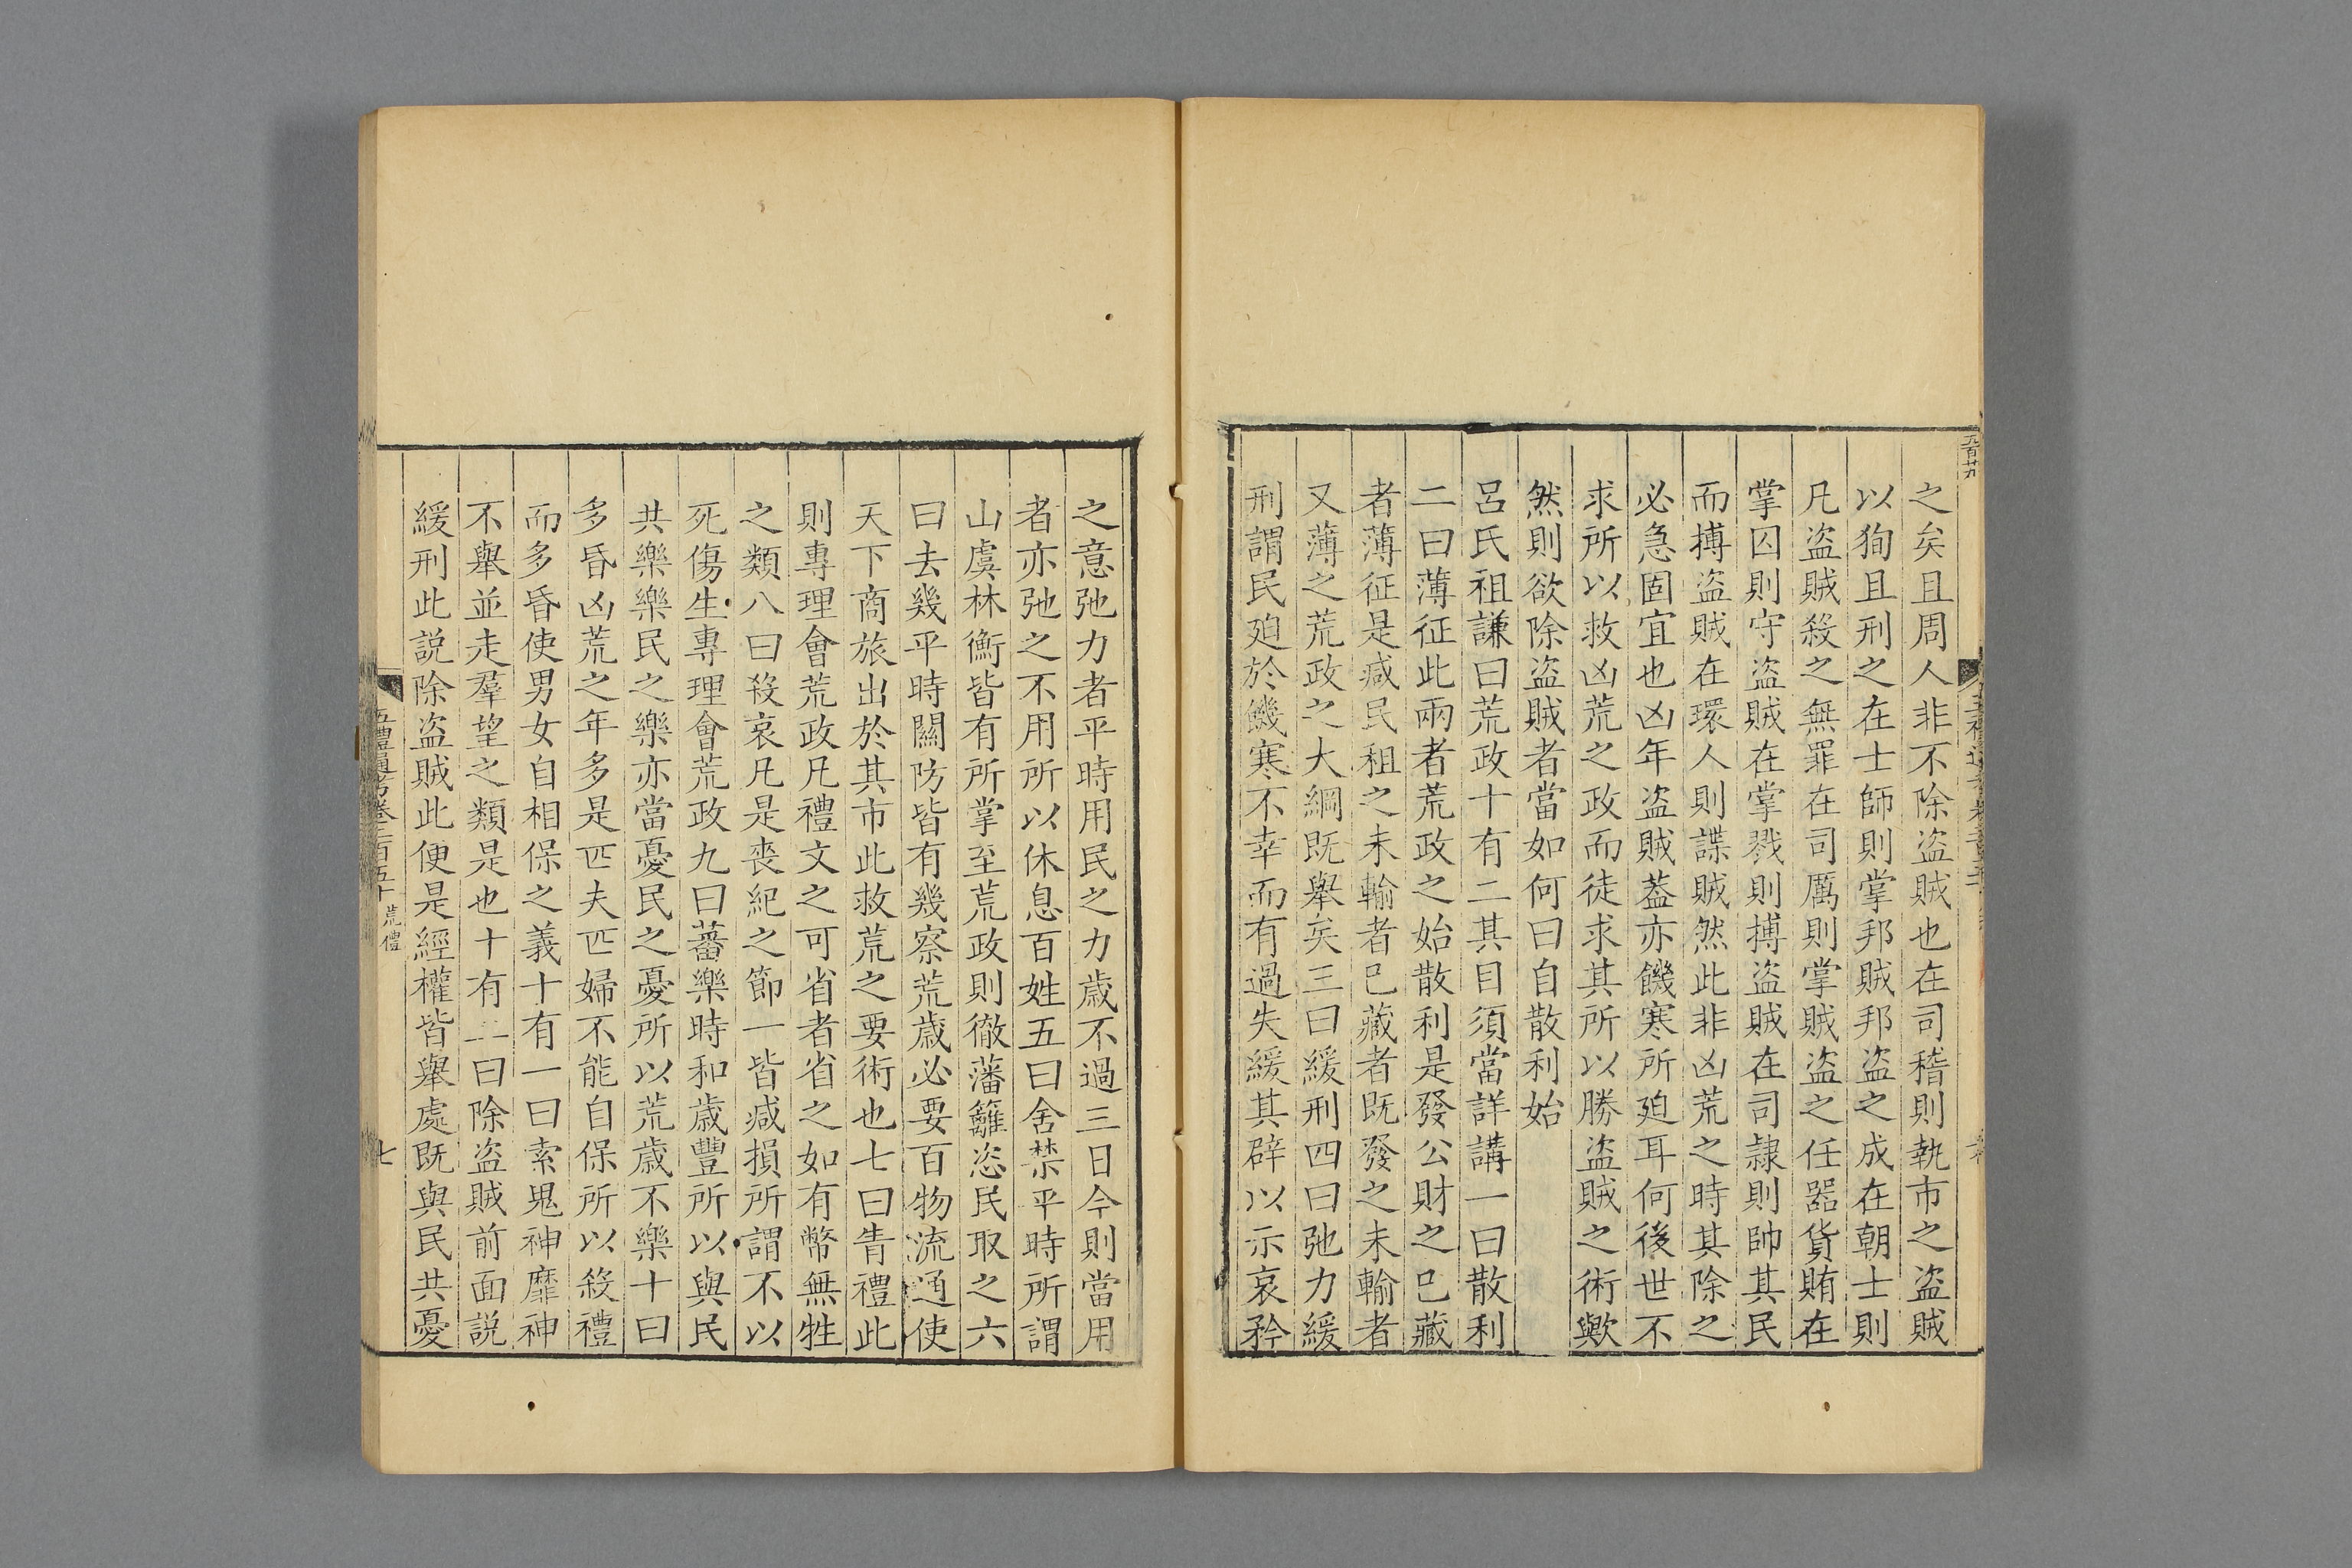 之矣且周人非不除盗賊也在司稽則執市之盗賊
以狥且刑之在士師則掌邦賊邦盗之成在朝士則
凡盗賊殺之無罪在司厲則掌賊盗之任器貨賄在
掌囚則守盗賊在掌戮則搏盗賊在司隷則帥其民
而搏盗賊在環人則諜賊然此非凶荒之時其除之
必急固宜也凶年盗賊葢亦饑寒所廹耳何後世不
求所以救凶荒之政而徒求其所以勝盗賊之術歟
然則欲除盗賊者當如何曰自散利始
呂氏祖謙曰荒政十有二其目須當詳講一曰散利
二曰薄征此兩者荒政之始散利是發公財之已藏
者薄征是减民租之未輸者已藏者既發之未輸者
又薄之荒政之大綱既舉矣三曰緩刑四曰弛力緩
刑謂民廹於饑寒不幸而有過失緩其辟以示哀矜
之意弛力者平時用民之力歳不過三日今則當用
者亦弛之不用所以休息百姓五曰舍禁平時所謂
山虞林衡皆有所掌至荒政則徹藩籬恣民取之六
曰去幾平時關防皆有幾察荒歳必要百物流通使
天下商旅出於其市此救荒之要術也七曰眚禮此
則專理會荒政凡禮文之可省者省之如有幣無牲
之類八曰殺哀凡是喪紀之節一皆减損所謂不以
死傷生專理會荒政九曰蕃樂時和歳豐所以與民
共樂樂民之樂亦當憂民之憂所以荒歳不樂十曰
多昏凶荒之年多是匹夫匹婦不能自保所以殺禮
而多昏使男女自相保之義十有一曰索鬼神靡神
不舉並走羣望之類是也十有二曰除盗賊前面説
緩刑此説除盗賊此便是經權皆舉處既與民共憂
五禮通考卷二百五十 荒禮
七